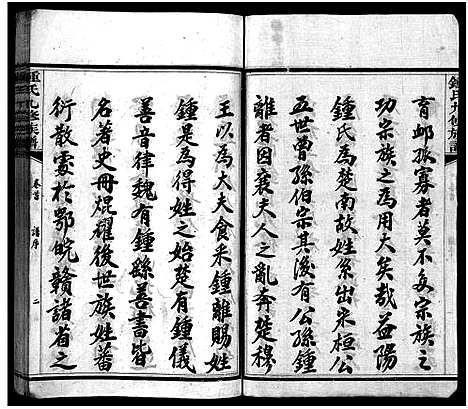 育卹孤寡者莫不多宗族之
功宗族之之為用大矣哉益陽
鍾氏為楚南故姓系出宋桓公
五世曾孫伯宗其後有公孫鍾
離者因襄夫人之亂奔楚穆
王以為大夫食采鍾離賜姓
鍾是為得姓之始楚有鍾儀
善音律魏有鍾繇善書皆
名著史冊焜耀後世族姓蕃
衍散處於鄂皖贛諸省之
鍾氏九修族譜
卷首
譜序
二